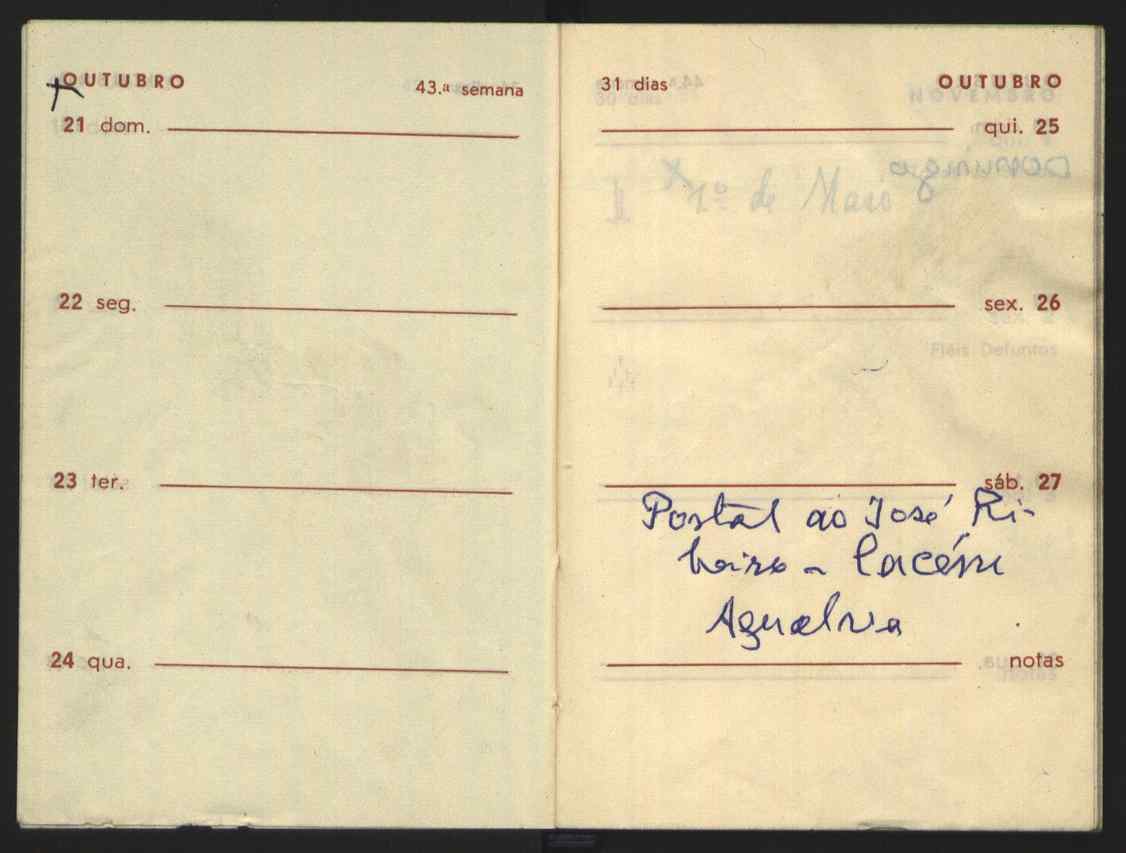 OUTUBRO
43.ª semana
21 dom.
22 seg.
23 ter.
24 qua.
31 dias
OUTUBRO
qui. 25
1º de Maio
sex. 26
Fiéis Defuntos
sáb. 27
Postal ao José Ri-
beiro - Cacém
Agualva
notas